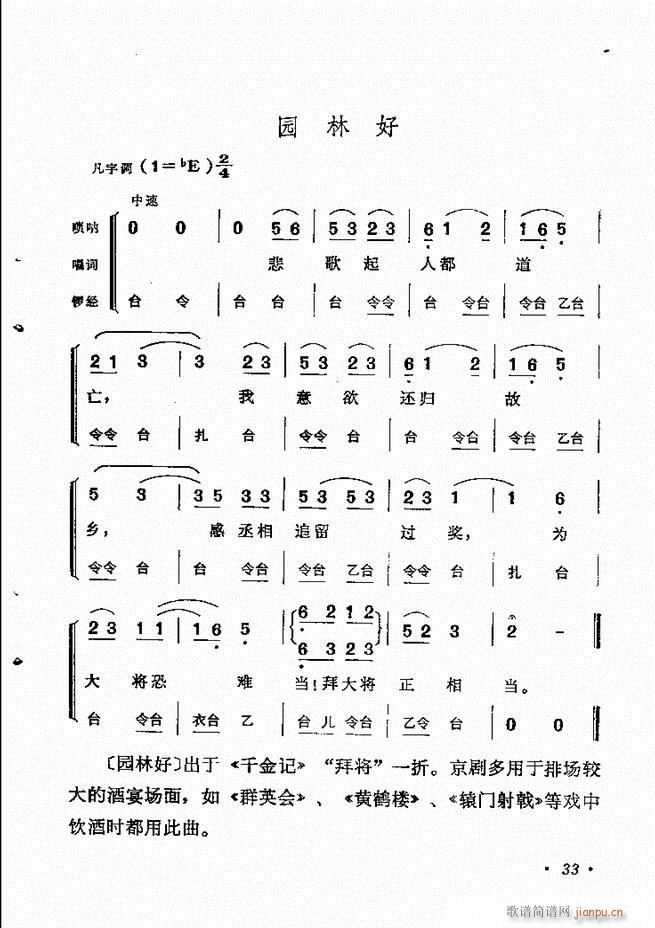 园林好
凡字调 (1=ᵇE) 2/4
中速
唢呐 0 0 | 0 56 | 53 23 | 61 2 | 16 5
唱词 悲 歌起 人都 道
锣经 台 令 | 台 台 | 台 令令 | 台 令台 | 令台 乙台
21 3 | 3 23 | 53 23 | 61 2 | 16 5
亡, 我 意 欲 还归 故
令令 台 | 扎 台 | 令令 台 | 台 令台 | 令台 乙台
5 3 | 35 33 | 53 53 | 23 1 | 1 6
乡, 感丞相 追留 过 奖, 为
令令 台 | 台 令台 | 令台 乙台 | 令令 台 | 扎 台
23 11 | 16 5 | 6 212 | 52 3 | 2 -
6 323
大 将恐 难 当!拜大将 正 相 当。
台 令台 | 衣台 乙 | 台儿 令台 | 乙令 台 | 0 0
〔园林好〕出于《千金记》“拜将”一折。京剧多用于排场较
大的酒宴场面,如《群英会》、《黄鹤楼》、《辕门射戟》等戏中
饮酒时都用此曲。
· 33 ·
歌谱简谱网 jianpu.cn